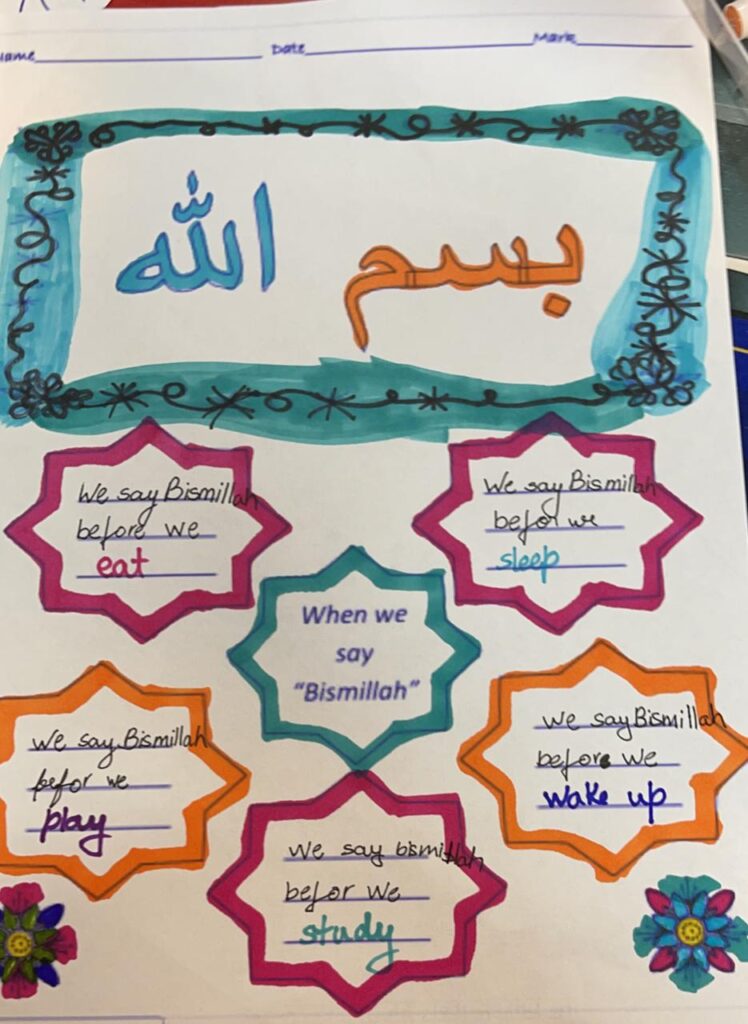 Name
Date
Mark
بسم الله
We say Bismillah
before we
eat
We say Bismillah
befor we
sleep
When we
say
"Bismillah"
We say Bismillah
befor we
play
We say Bismillah
before we
wake up
We say bismillah
befor we
study